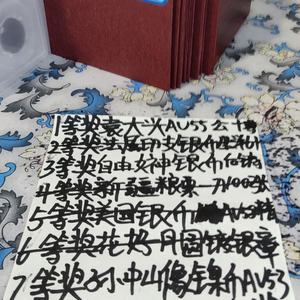 1等奖袁大头AU55公博
2等奖法属印支银币坐洋
3等奖自由女神银币
4等奖新疆粮票一刀100张
5等奖美国银币AU53
6等奖花奖一月圆镀银章
7等奖孙中山像镍币AU53